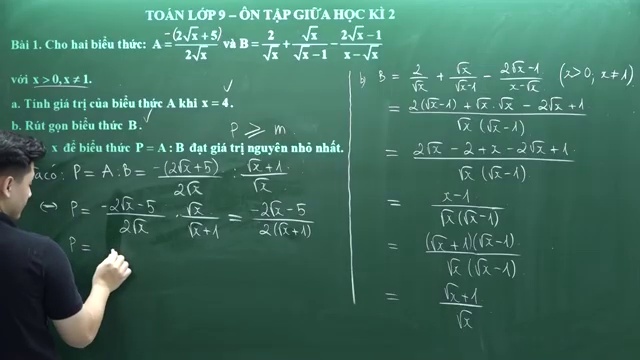 TOÁN LỚP 9 – ÔN TẬP GIỮA HỌC KÌ 2
Bài 1. Cho hai biểu thức: A = -(2√x+5)/(2√x) và B = 2/√x + √x/(√x-1) - (2√x-1)/(x-√x)
với x > 0, x ≠ 1.
a. Tính giá trị của biểu thức A khi x = 4.
b. Rút gọn biểu thức B.
P ⩾ m
x để biểu thức P = A : B đạt giá trị nguyên nhỏ nhất.
có: P = A:B = -(2√x+5)/(2√x) : (√x+1)/√x
(⇔) P = (-2√x-5)/(2√x) · √x/(√x+1) = (-2√x-5)/(2(√x+1))
P =
b) B = 2/√x + √x/(√x-1) - (2√x-1)/(x-√x) (x>0; x≠1)
= (2(√x-1) + √x.√x - 2√x+1)/(√x(√x-1))
= (2√x - 2 + x - 2√x+1)/(√x(√x-1))
= (x-1)/(√x(√x-1))
= ((√x+1)(√x-1))/(√x(√x-1))
= (√x+1)/√x